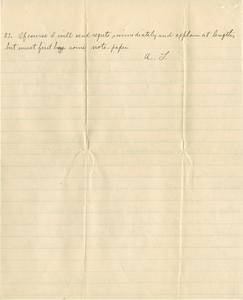 Of course I will send regrets immediately and explain at length,
but must find some note paper.
A. L.